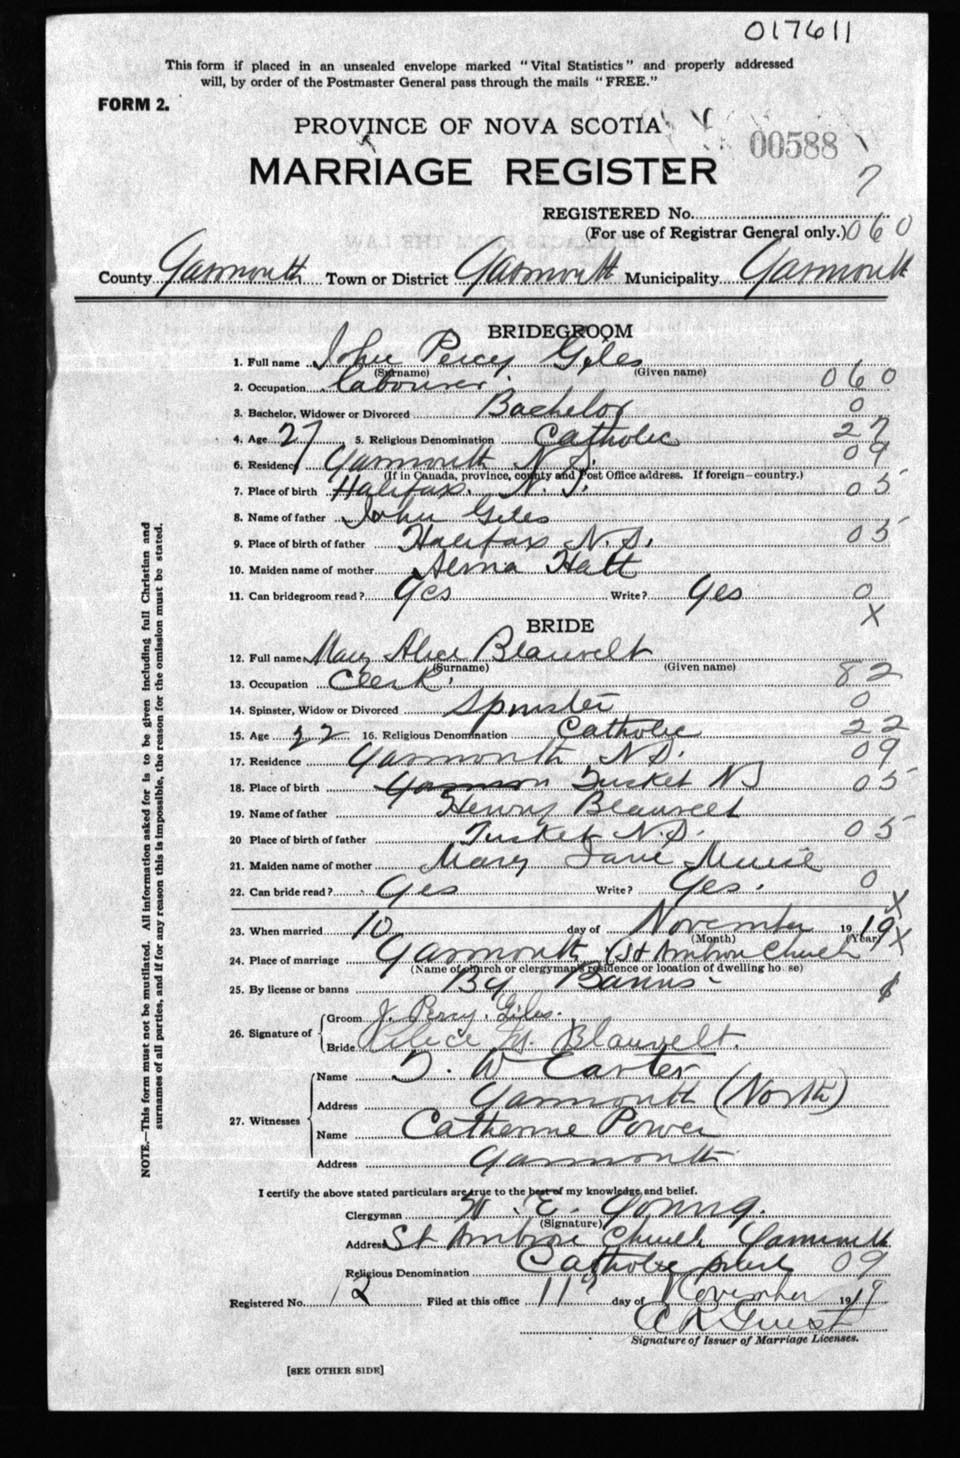 017611
This form if placed in an unsealed envelope marked "Vital Statistics" and properly addressed
will, by order of the Postmaster General pass through the mails "FREE."
FORM 2.
PROVINCE OF NOVA SCOTIA
00588
MARRIAGE REGISTER
7
REGISTERED No.
(For use of Registrar General only.) 060
County Yarmouth Town or District Yarmouth Municipality Yarmouth
BRIDEGROOM
1. Full name John Percy Giles
(Surname) (Given name)
2. Occupation Labourer. 060
3. Bachelor, Widower or Divorced Bachelor 0
4. Age 27 5. Religious Denomination Catholic 27
6. Residence Yarmouth N.S. 09
(If in Canada, province, county and Post Office address. If foreign—country.)
7. Place of birth Halifax. N.S. 05
8. Name of father John Giles
9. Place of birth of father Halifax N.S. 05
10. Maiden name of mother Hatt
11. Can bridegroom read? Yes Write? Yes 0
X
BRIDE
12. Full name Mary Alice Blauvelt
(Surname) (Given name)
13. Occupation Clerk. 82
14. Spinster, Widow or Divorced Spinster 0
15. Age 22 16. Religious Denomination Catholic 22
17. Residence Yarmouth N.S. 09
18. Place of birth Tusket NS 05
19. Name of father Henry Blauvelt
20 Place of birth of father Tusket N.S. 05
21. Maiden name of mother Mary Jane
22. Can bride read? Yes Write? Yes. 0
X
23. When married 10 day of November 1919
(Month) (Year) X
24. Place of marriage Yarmouth (St Ambrose Church
(Name of church or clergyman's residence or location of dwelling house)
25. By license or banns By Banns
26. Signature of Groom J. Percy. Giles.
Bride Alice M. Blauvelt.
27. Witnesses
Name W Carter
Address Yarmouth (North)
Name Catherine Power
Address Yarmouth
I certify the above stated particulars are true to the best of my knowledge and belief.
Clergyman W. E. Young.
(Signature)
Address St Ambrose Church Yarmouth
Religious Denomination Catholic priest 09
Registered No. 12 Filed at this office 11th day of November 1919
Guest
Signature of Issuer of Marriage Licenses.
[SEE OTHER SIDE]
NOTE.—This form must not be mutilated. All information asked for is to be given including full Christian and
surnames of all parties, and if for any reason this is impossible, the reason for the omission must be stated.